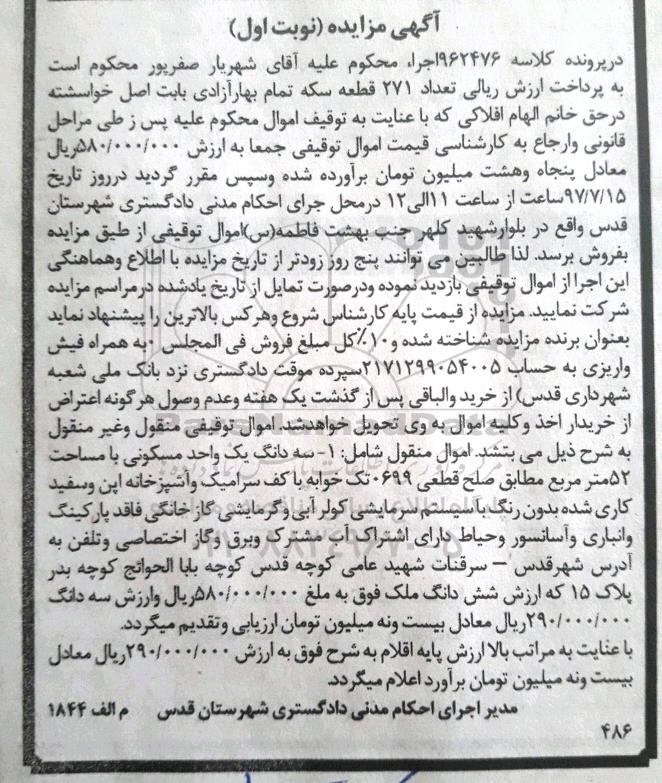 آگهی مزایده (نوبت اول)
درپرونده کلاسه ۹۶۲۴۷۶اجرا، محکوم علیه آقای شهریار صفرپور محکوم است
به پرداخت ارزش ریالی تعداد ۲۷۱ قطعه سکه تمام بهارآزادی بابت اصل خواسشته
درحق خانم الهام افلاکی که با عنایت به توقیف اموال محکوم علیه پس ز طی مراحل
قانونی وارجاع به کارشناسی قیمت اموال توقیفی جمعا به ارزش ۵۸۰/۰۰۰/۰۰۰ریال
معادل پنجاه وهشت میلیون تومان برآورده شده وسپس مقرر گردید درروز تاریخ
۹۷/۷/۱۵ساعت از ساعت ۱۱الی۱۲ درمحل جرای احکام مدنی دادگستری شهرستان
قدس واقع در بلوارشهید کلهر جنب بهشت فاطمه(س)اموال توقیفی از طیق مزایده
بفروش برسد. لذا طالبین می توانند پنج روز زودتر از تاریخ مزایده با اطلاع وهماهنگی
این اجرا از اموال توقیفی بازدید نموده ودرصورت تمایل از تاریخ یادشده درمراسم مزایده
شرکت نمایید. مزایده از قیمت پایه کارشناس شروع وهرکس بالاترین را پیشنهاد نماید
بعنوان برنده مزایده شناخته شده و۱۰٪کل مبلغ فروش فی المجلس ۰به همراه فیش
واریزی به حساب ۲۱۷۱۲۹۹۰۵۴۰۰۵سپرده موقت دادگستری نزد بانک ملی شعبه
شهرداری قدس) از خرید والباقی پس از گذشت یک هفته وعدم وصول هرگونه اعتراض
از خریدار اخذ وکلیه اموال به وی تحویل خواهدشد. اموال توقیفی منقول وغیر منقول
به شرح ذیل می بتشد. اموال منقول شامل: ۱- سه دانگ یک واحد مسکونی با مساحت
۵۲متر مربع مطابق صلح قطعی ۰۶۹۹تک خوابه با کف سرامیک وآشپزخانه اپن وسفید
کاری شده بدون رنگ باسیستم سرمایشی کولر آبی وگرمایشی گاز خانگی فاقد پارکینگ
وانباری وآسانسور وحیاط دارای اشتراک آب مشترک وبرق وگاز اختصاصی وتلفن به
آدرس شهرقدس – سرقنات شهید عامی کوچه قدس کوچه بابا الحوائج کوچه بدر
پلاک ۱۵ که ارزش شش دانگ ملک فوق به ملغ ۵۸۰/۰۰۰/۰۰۰ریال وارزش سه دانگ
۲۹۰/۰۰۰/۰۰۰ریال معادل بیست ونه میلیون تومان ارزیابی وتقدیم میگردد.
با عنایت به مراتب بالا ارزش پایه اقلام به شرح فوق به ارزش ۲۹۰/۰۰۰/۰۰۰ریال معادل
بیست ونه میلیون تومان برآورد اعلام میگردد.
مدیر اجرای احکام مدنی دادگستری شهرستان قدس م الف ۱۸۴۴
۴۸۶